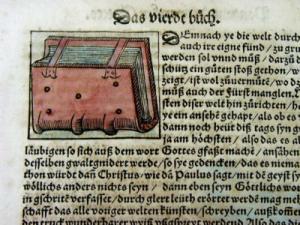 Das vierde buͤch.
DEmnach ye die welt durch
auch ire eigne fünd / zu
werden sol vnnd muͤß / darzuͦ d
schütz ein guͤten stoß gethon / w
zeigt / ist wol zuuermuͤtē / wo d
muͤß auch der fürst manglen. D
sten diser welt hin zürichten / h
ye ein ansehē gehapt / als ob es v
dann noch heüt diß tags syn
ja am höchstē / also das es al
läubigen so sich auß dem wort Gottes gfaßt macht / ansähen
desselben gwaltgnidert werde / so ye gedencken / das es niema
thon würdt dañ Christus / wie dā Paulus sagt / mit dē geyst sy
wöllichs anders nichts seyn / dann eben seyn Göttlichs wo
in gschrifft verfasset / durch glert leüth erörtert werde das meg
schafft das alle voriger welten künsten / schreyben /
den truck wunderbarer wyß vßgspiret werdend Also das di